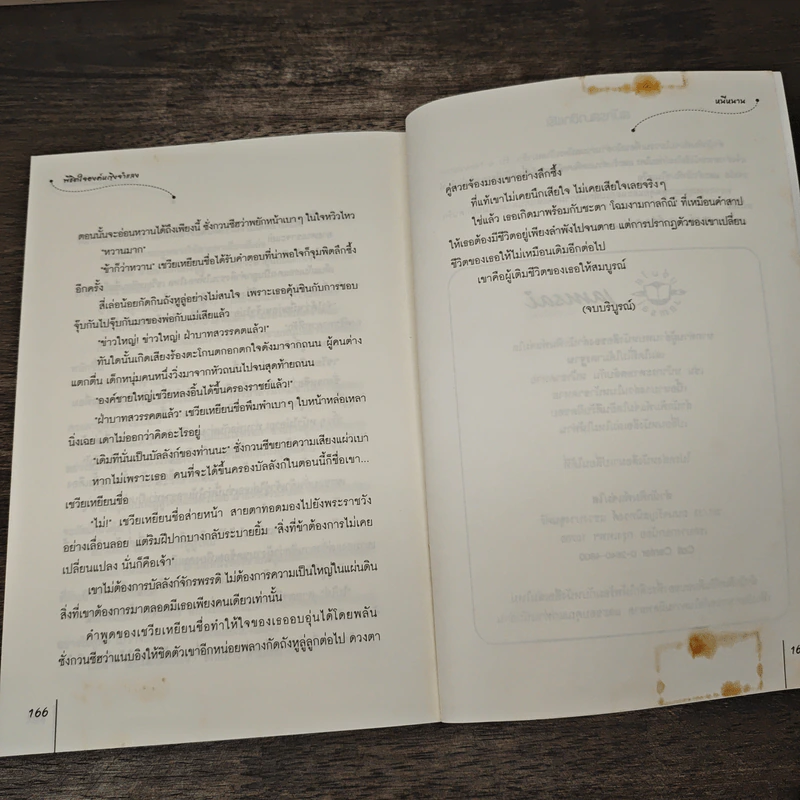 ตอนนั้นจะอ่อนหวานได้ถึงเพียงนี้ ซั่งกวนซีฮว่าพยักหน้าเบาๆ ในใจหวิวไหว
"หวานมาก"
"ข้าก็ว่าหวาน" เซวียเหยียนซื่อได้รับคำตอบที่น่าพอใจก็จุมพิตลึกซึ้ง
อีกครั้ง
สี่เล่อน้อยกัดกินถังหูลู่อย่างไม่สนใจ เพราะเธอคุ้นชินกับการชอบ
จุ๊บกันไปจุ๊บกันมาของพ่อกับแม่เสียแล้ว
"ข่าวใหญ่! ข่าวใหญ่! ฝ่าบาทสวรรคตแล้ว!"
ทันใดนั้นเกิดเสียงร้องตะโกนตกอกตกใจดังมาจากถนน ผู้คนต่าง
แตกตื่น เด็กหนุ่มคนหนึ่งวิ่งมาจากหัวถนนไปจนสุดท้ายถนน
"องค์ชายใหญ่เซวียหลงอิ้นได้ขึ้นครองราชย์แล้ว!"
"ฝ่าบาทสวรรคตแล้ว" เซวียเหยียนซื่อพึมพำเบาๆ ใบหน้าหล่อเหลา
นิ่งเฉย เดาไม่ออกว่าคิดอะไรอยู่
"เดิมทีนั่นเป็นบัลลังก์ของท่านนะ" ซั่งกวนซีขยายความเสียงแผ่วเบา
หากไม่เพราะเธอ คนที่จะได้ขึ้นครองบัลลังก์ในตอนนี้ก็ชื่อเขา...
เซวียเหยียนซื่อ
"ไม่!" เซวียเหยียนซื่อส่ายหน้า สายตาทอดมองไปยังพระราชวัง
อย่างเลื่อนลอย แต่ริมฝีปากบางกลับระบายยิ้ม "สิ่งที่ข้าต้องการไม่เคย
เปลี่ยนแปลง นั่นก็คือเจ้า"
เขาไม่ต้องการบัลลังก์จักรพรรดิ ไม่ต้องการความเป็นใหญ่ในแผ่นดิน
สิ่งที่เขาต้องการมาตลอดมีเธอเพียงคนเดียวเท่านั้น
คำพูดของเซวียเหยียนซื่อทำให้ใจของเธออบอุ่นได้โดยพลัน
ซั่งกวนซีฮว่าแนบอิงให้ชิดตัวเขาอีกหน่อยพลางกัดถังหูลู่ลูกต่อไป ดวงตา
166
หมีหนาน
คู่สวยจ้องมองเขาอย่างลึกซึ้ง
ที่แท้เขาไม่เคยนึกเสียใจ ไม่เคยเสียใจเลยจริงๆ
ใช่แล้ว เธอเกิดมาพร้อมกับชะตา 'โฉมงามกาลกิณี' ที่เหมือนคำสาป
ให้เธอต้องมีชีวิตอยู่เพียงลำพังไปจนตาย แต่การปรากฏตัวของเขาเปลี่ยน
ชีวิตของเธอให้ไม่เหมือนเดิมอีกต่อไป
เขาคือผู้เติมชีวิตของเธอให้สมบูรณ์
(จบบริบูรณ์)